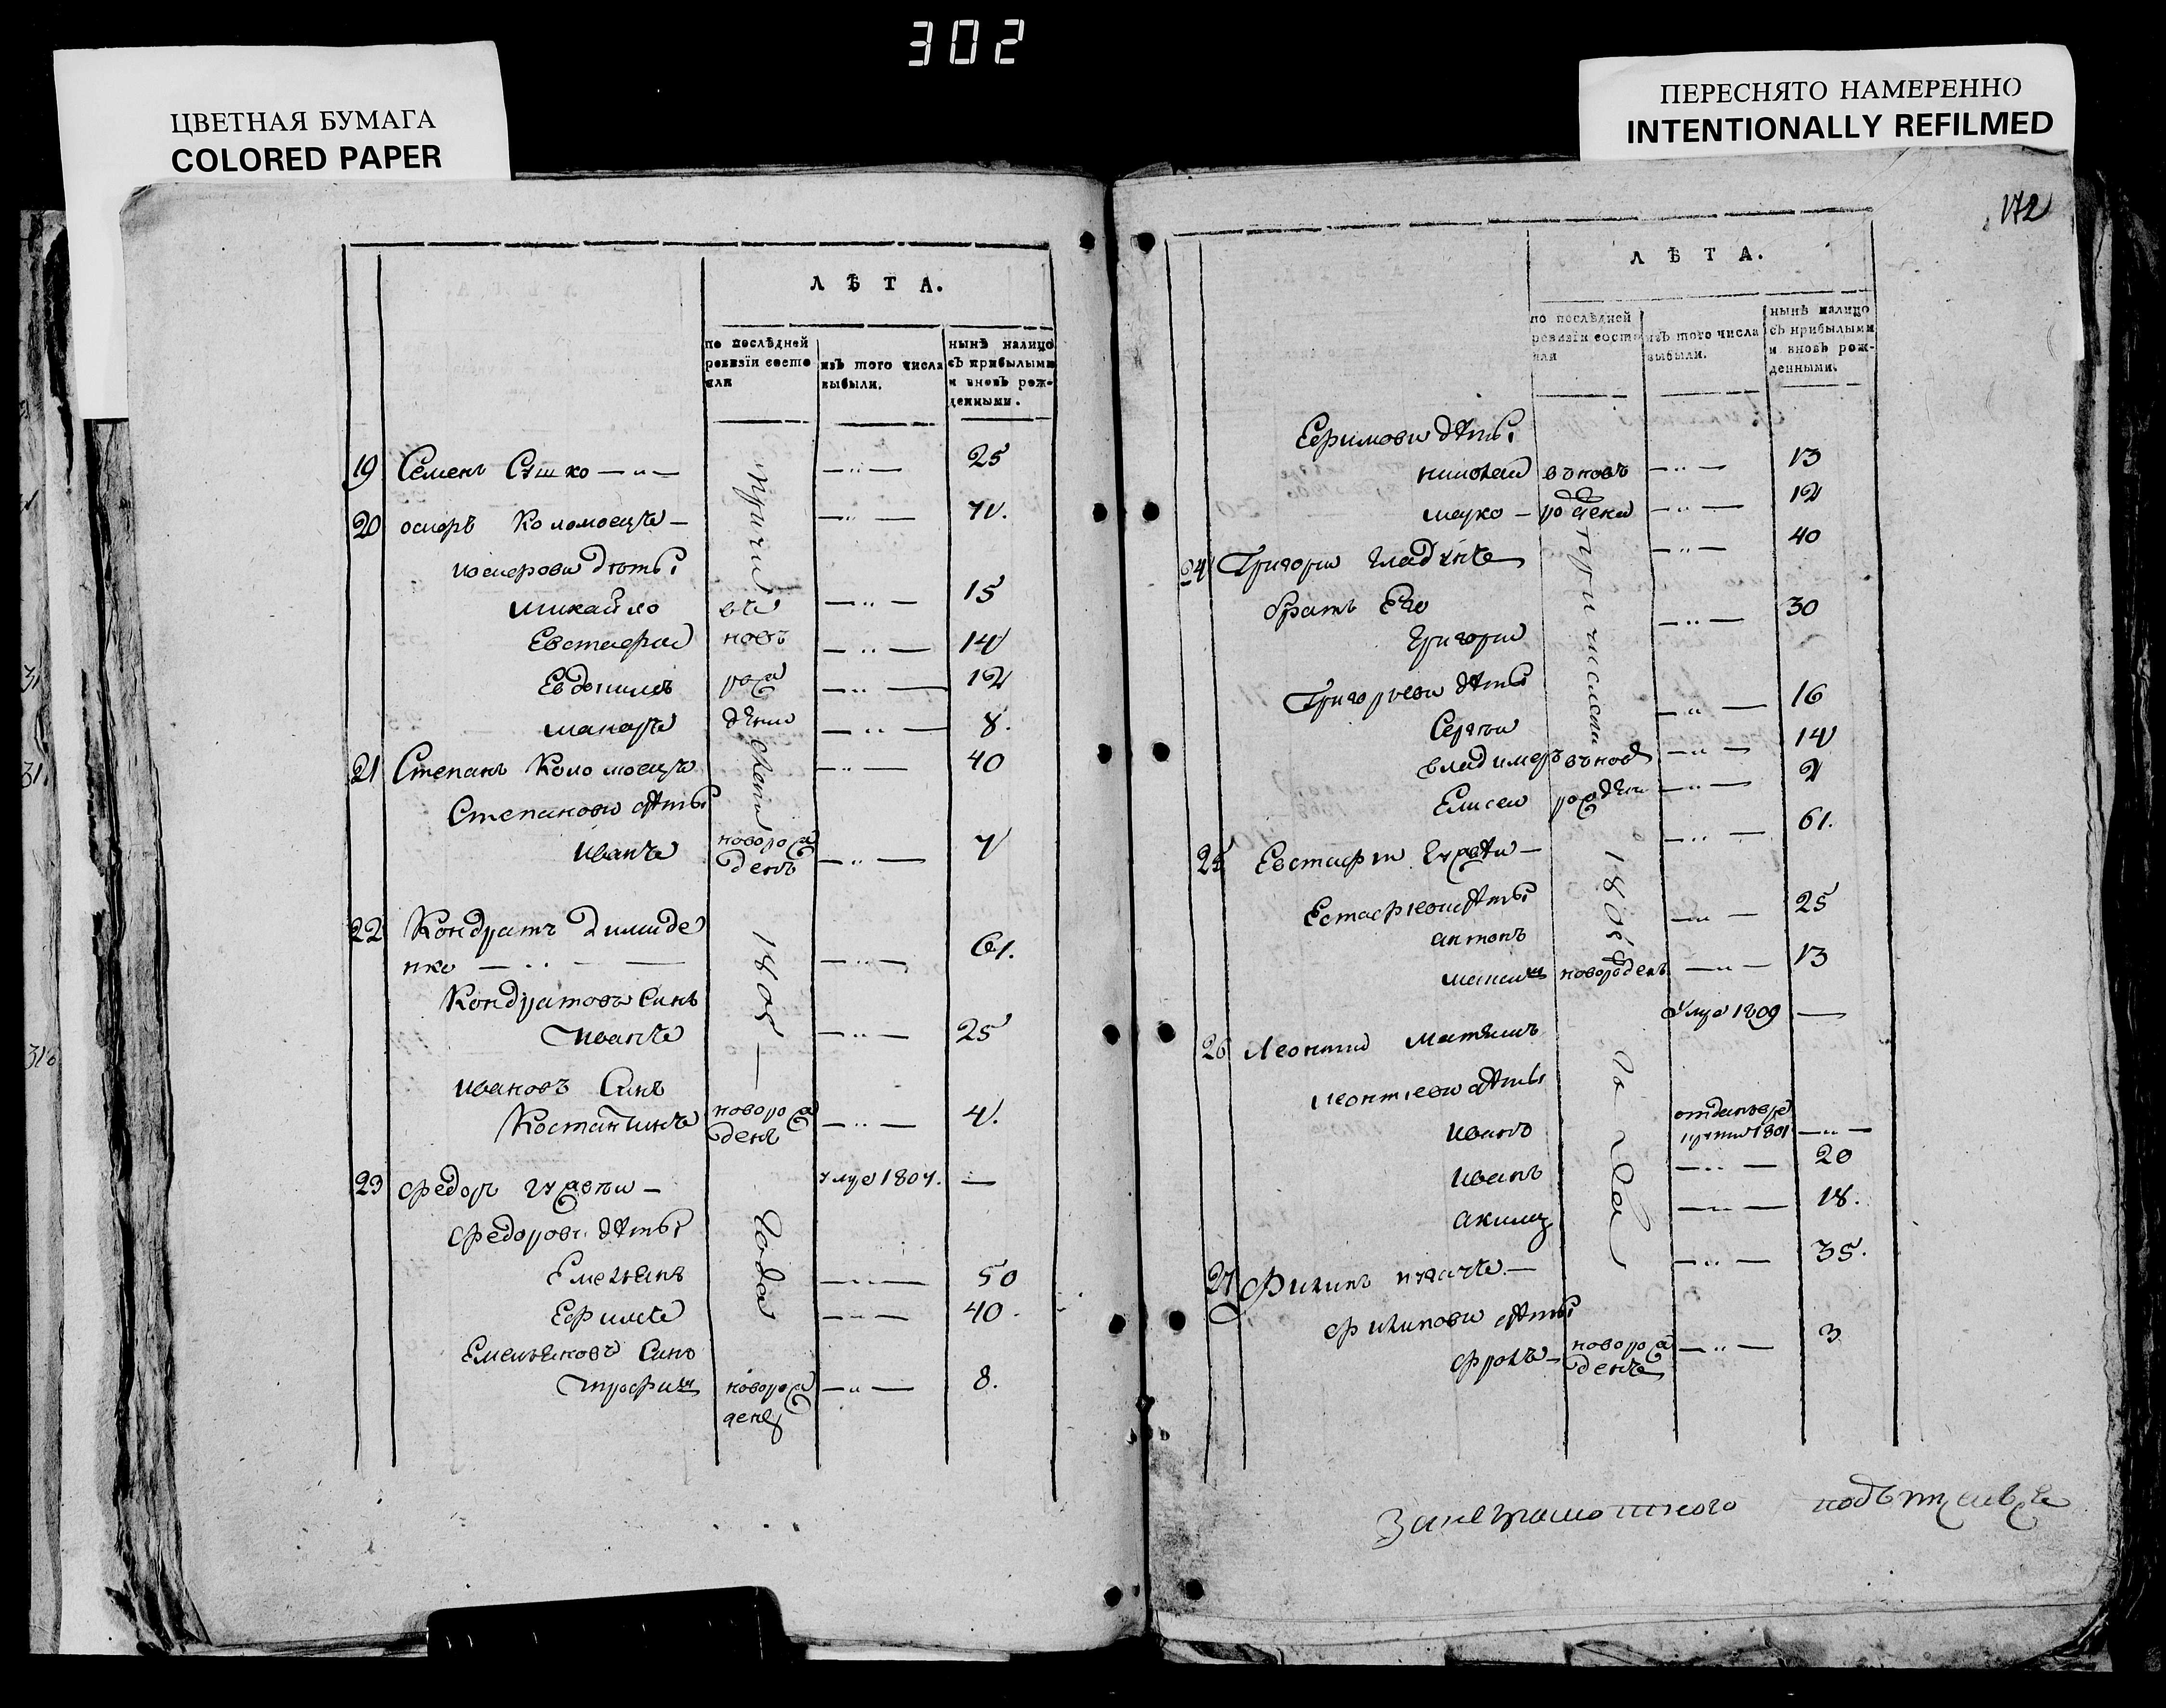 302
ЦВЕТНАЯ БУМАГА
COLORED PAPER
ПЕРЕСНЯТО НАМЕРЕННО
INTENTIONALLY REFILMED
172
ЛѢТА.
по послѣдней ревизіи состояли
изъ того числа выбыли.
нынѣ налицо съ прибылыми и вновь рожденными.
19 Семенъ Сѣшко — „ — — „ — 25
20 осиеръ Коломоецъ — — „ — 71.
иосиеровы дѣты
михайло вче — „ — 15
Евстафии новъ — „ — 14
Евдокимъ рож — „ — 12
макаръ дени — „ — 8.
21 Степанъ Коломоецъ — „ — 40
Степановы дѣты
Иванъ новорожденъ — „ — 7
22 Кондратъ Димиде
нко — „ — — — „ — 61.
Кондратовъ Синъ
Иванъ — „ — 25
ивановъ Синъ
Костантинъ новорожденъ — „ — 4.
23 Федоръ умре 1807. —
Федоровы дѣты
Емельянъ — „ — 50
Ефимъ — „ — 40.
Емельяновъ Синъ
трофим новорожденъ — „ — 8.
причи слени 1805 — года
ЛѢТА.
по послѣдней ревизіи состояли
изъ того числа выбыли.
нынѣ налицо съ прибылыми и вновь рожденными.
Ефимовы дѣты
николай вновъ — „ — 13
марко — рождени — „ — 12
24 Григори Гладкий — „ — 40
братъ Его
Григори — „ — 30
Григорьевы дѣты
Сергѣи — „ — 16
владимеръ вновъ — „ — 14
Елисеи рождени — „ — 2
25 Евстафии — — „ — 61.
Естафиевы дѣты
антонъ — „ — 25
максим новорожденъ — „ — 13
26 Леонтии умре 1809 —
леонтиевы дѣты
Иванъ отданъ в рекруты 1801 — „ —
Иванъ — „ — 20
аким — „ — 18.
27 Филипъ ткачъ — — „ — 35.
филиповы дѣты
фролъ — новорожденъ — „ — 3
причислени 1805 го года
За неграмотного